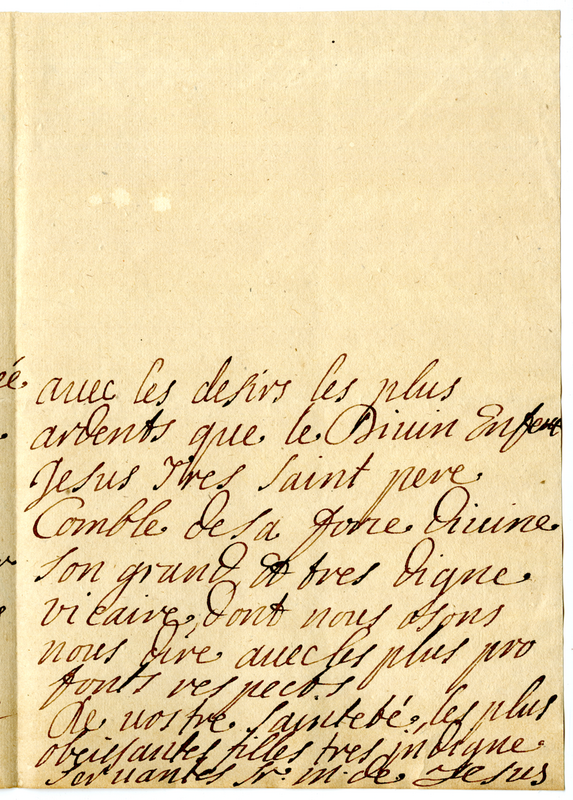 auec les desirs les plus
ardents que le Diuin Enfent
Jesus Tres saint pere
Comble de sa forre diuine
son grand et tres digne
vicaire, dont nous osons
nous dire auec les plus pro
fonts respects
De nostre sainteté, les plus
obeissantes filles tres indigne
seruantes Sr. m. de Jesus